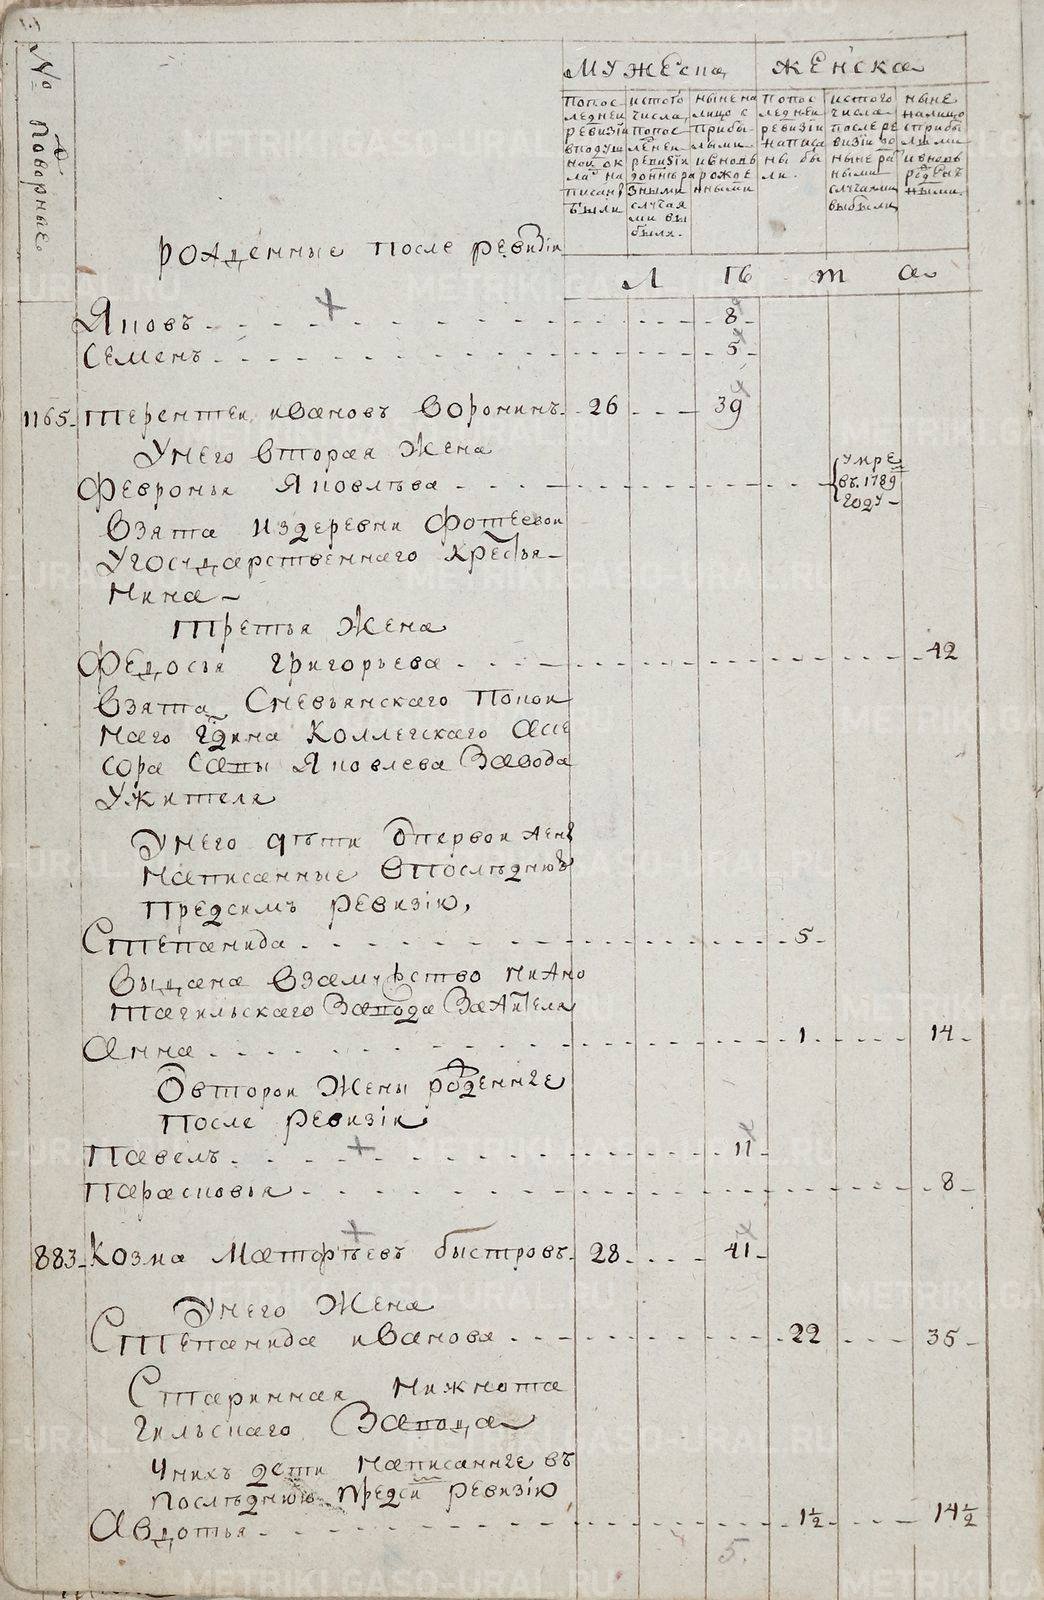 № подворные
МУЖЕСКА ЖЕНСКА
попоследней ревизіи вподушной оклад написаны были
истого числа попоследней ревизіи доннѣ разными случаями выбыло.
ныне на лицо с прибылыми и вновь рожденными
попоследней ревизіи написаны были.
истого числа после ревизіи до ныне разными случаями выбыли
ныне налицо с прибылыми и вновь рожденными.
рожденные после ревизіи
Лѣта
Яковъ 8
Семенъ 5
1165 Терентеи ивановъ Воронинъ 26 39
Унего вторая жена
Февронья Яковлѣва
умре въ 1789 году
Взята издеревни Фотеевои
Угосударственнаго кресья-
нина
Третья жена
Федосья григорьева 42
Взята Сневьянскаго покои
наго гдина Коллегскаго асе
сора Савы Яковлева Завода
Ужителя
Унего дѣти отпервои жены
написанные впослѣднюю
предсимъ ревизію,
Степанида 5
Выдана взамужство нижно
тагильскаго Завода Зажителя
Анна 1 14
Отвторои жены рожденные
после ревизіи
Павелъ 11
Парасковья 8
883 Козма Матфѣевъ быстровъ 28 41
Унего жена
Степанида иванова 22 35
Старинная нижнота
гильскаго Завода
Унихъ дети написанные въ
послѣднюю предси ревизію
Авдотья 1½ 14½
5.
METRIKI.GASO-URAL.RU